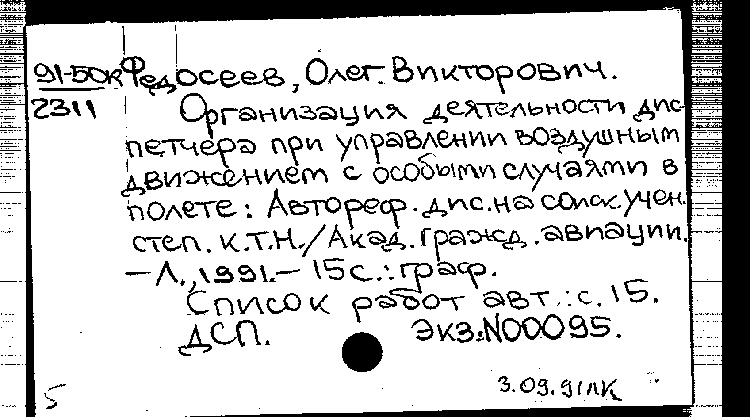 91-50К Федосеев, Олег Викторович.
2311 Организация деятельности дис-
петчера при управлении воздушным
движением с особыми случаями в
полете: Автореф. дис. на соиск. учен.
степ. к.т.н./Акад. гражд. авиации.
– Л., 1991. – 15 с.: граф.
Список работ авт.: с. 15.
ДСП. Экз. N00095.
3.09.91 ЛК
5